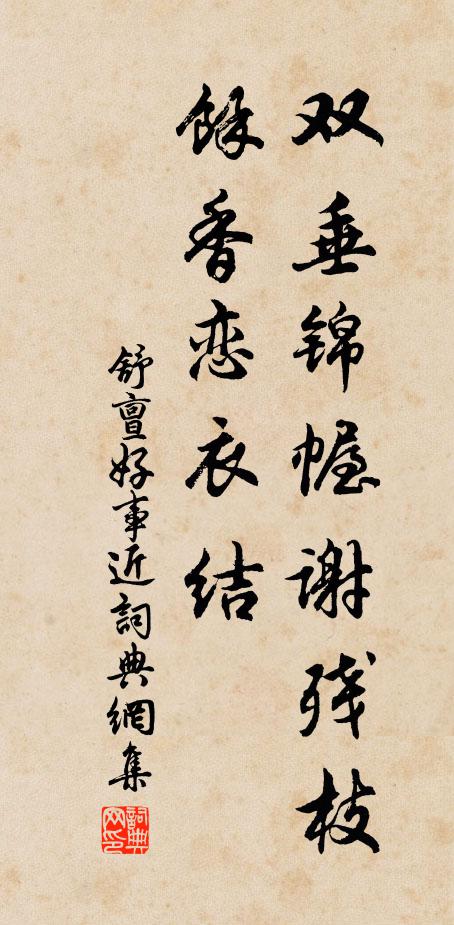 双垂锦幄谢残枝
餘香恋衣结
舒亶好事近詞典網集
詞典网印